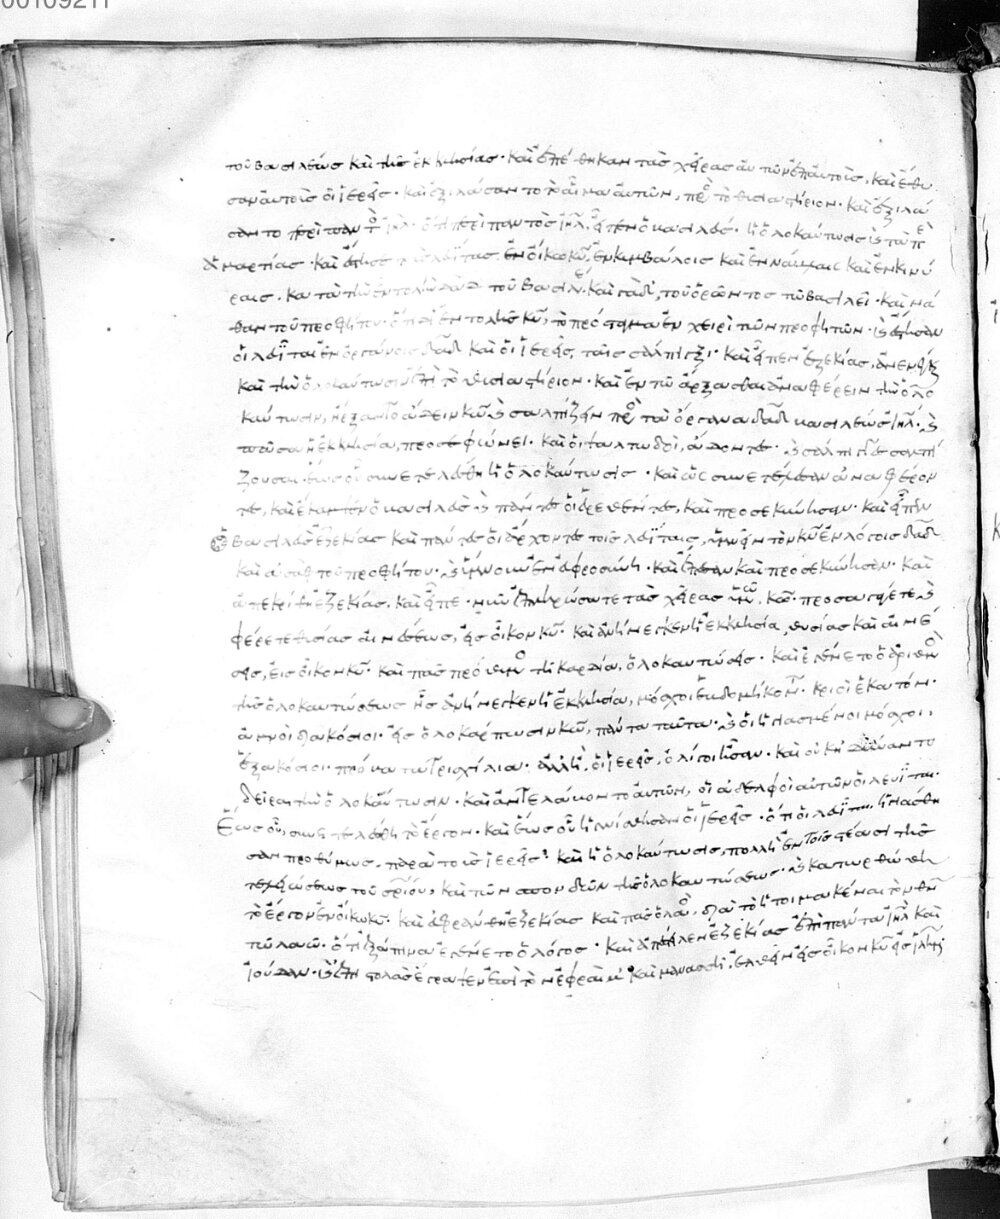 00109211
τοῦ βασιλέως καὶ τῆς ἐκκλησίας · καὶ ἐπέθηκαν τὰς χεῖρας αὐτῶν ἐπ αὐτοῖς, καὶ ἔθυ
σαν αὐτοὺς οἱ ἱερεῖς · καὶ ἐξιλάσαντο τὸ αἷμα αὐτῶν, πρὸς τὸ θυσιαστήριον · καὶ ἐξιλά
σαντο περὶ παντὸς ἰηλ · ὅτι περὶ παντὸς ἰηλ, εἶπεν ὁ βασιλεὺς · ἡ ὁλοκαύτωσις καὶ τὰ περὶ
ἁμαρτίας · καὶ ἔστησε τοὺς λευΐτας ἐν οἴκω κυ, ἐν κυμβάλοις καὶ ἐν νάβλαις καὶ ἐν κινύ
ραις · κατὰ τὴν ἐντολὴν δαδ τοῦ βασιλέως καὶ γὰδ, τοῦ ὁρῶντος τῶ βασιλεῖ · καὶ νά
θαν τοῦ προφήτου · ὅτι δι ἐντολῆς κυ, τὸ πρόσταγμα ἐν χειρὶ τῶν προφητῶν · καὶ ἔστησαν
οἱ λευῖται ἐν ὀργάνοις δαδ καὶ οἱ ἱερεῖς, ταῖς σάλπιγξι · καὶ εἶπεν ἐζεκίας, ἀνενέγκαι
καὶ τὴν ὁλοκαύτωσιν ἐπὶ τὸ θυσιαστήριον · καὶ ἐν τῶ ἄρξασθαι ἀναφέρειν τὴν ὁλο
καύτωσιν, ἤρξαντο ἄδειν κω καὶ σάλπιγξιν πρὸς τὰ ὄργανα δαδ βασιλέως ἰηλ · καὶ
πᾶσα ἡ ἐκκλησία, προσεφώνει · καὶ οἱ ψαλτωδοὶ, ἄδοντες · καὶ σάλπιγγες σαλπί
ζουσαι · ἕως οὗ συνετελέσθη ἡ ὁλοκαύτωσις · καὶ ὡς συνετέλεσαν ἀναφέρον
τες, καὶ ἔκαμψεν ὁ βασιλεὺς καὶ πάντες οἱ εὑρεθέντες, καὶ προσεκύνησαν · καὶ εἶπεν
ὁ βασιλεὺς ἐζεκίας καὶ πάντες οἱ ἄρχοντες τοῖς λευΐταις, ὑμνεῖν τὸν κν ἐν λόγοις δαδ
καὶ ἀσὰφ τοῦ προφήτου · καὶ ὕμνουν ἐν εὐφροσύνη · καὶ ἔπεσον καὶ προσεκύνησαν · καὶ
ἀπεκρίθη ἐζεκίας, καὶ εἶπε · νῦν ἐπληρώσατε τὰς χεῖρας ὑμῶν κω · προσαγάγετε καὶ
φέρετε θυσίας αἰνέσεως, εἰς οἶκον κυ · καὶ ἀνήνεγκεν ἡ ἐκκλησία, θυσίας καὶ αἰνέ
σεις, εἰς οἶκον κυ · καὶ πᾶς πρόθυμος τῆ καρδία, ὁλοκαυτώσεις · καὶ ἐγένετο ὁ ἀριθμὸς
τῆς ὁλοκαυτώσεως ἧς ἀνήνεγκεν ἡ ἐκκλησία, μόσχοι ἑβδομήκοντα · κριοὶ ἑκατόν ·
ἀμνοὶ διακόσιοι · εἰς ὁλοκάρπωσιν κω, πάντα ταῦτα · καὶ οἱ ἡγιασμένοι μόσχοι,
ἑξακόσιοι · πρόβατα τρισχίλια · ἀλλ ἢ, οἱ ἱερεῖς, ὀλίγοι ἦσαν · καὶ οὐκ ἐδύναντο
δεῖραι τὴν ὁλοκαύτωσιν · καὶ ἀντελάβοντο αὐτῶν, οἱ ἀδελφοὶ αὐτῶν οἱ λευῖται ·
ἕως οὗ, συνετελέσθη τὸ ἔργον · καὶ ἕως οὗ ἡγνίσθησαν οἱ ἱερεῖς · ὅτι οἱ λευῖται ἡγνίσθη
σαν προθύμως, παρὰ τοὺς ἱερεῖς · καὶ ἡ ὁλοκαύτωσις, πολλὴ ἐν τοῖς στέασι τῆς
τελειώσεως τοῦ σωτηρίου, καὶ τῶν σπονδῶν τῆς ὁλοκαυτώσεως · καὶ κατωρθώθη
τὸ ἔργον ἐν οἴκω κυ · καὶ εὐφράνθη ἐζεκίας καὶ πᾶς ὁ λαὸς, διὰ τὸ ἡτοιμακέναι τὸν θν
τῶ λαῶ · ὅτι ἐξάπινα ἐγένετο ὁ λόγος · καὶ ἀπέστειλεν ἐζεκίας ἐπὶ πάντα ἰηλ καὶ
ἰούδαν · καὶ ἐπιστολὰς ἔγραψεν ἐπὶ τὸν ἐφραὶμ καὶ μανασσῆ, ἐλθεῖν εἰς οἶκον κυ εἰς ἰλημ